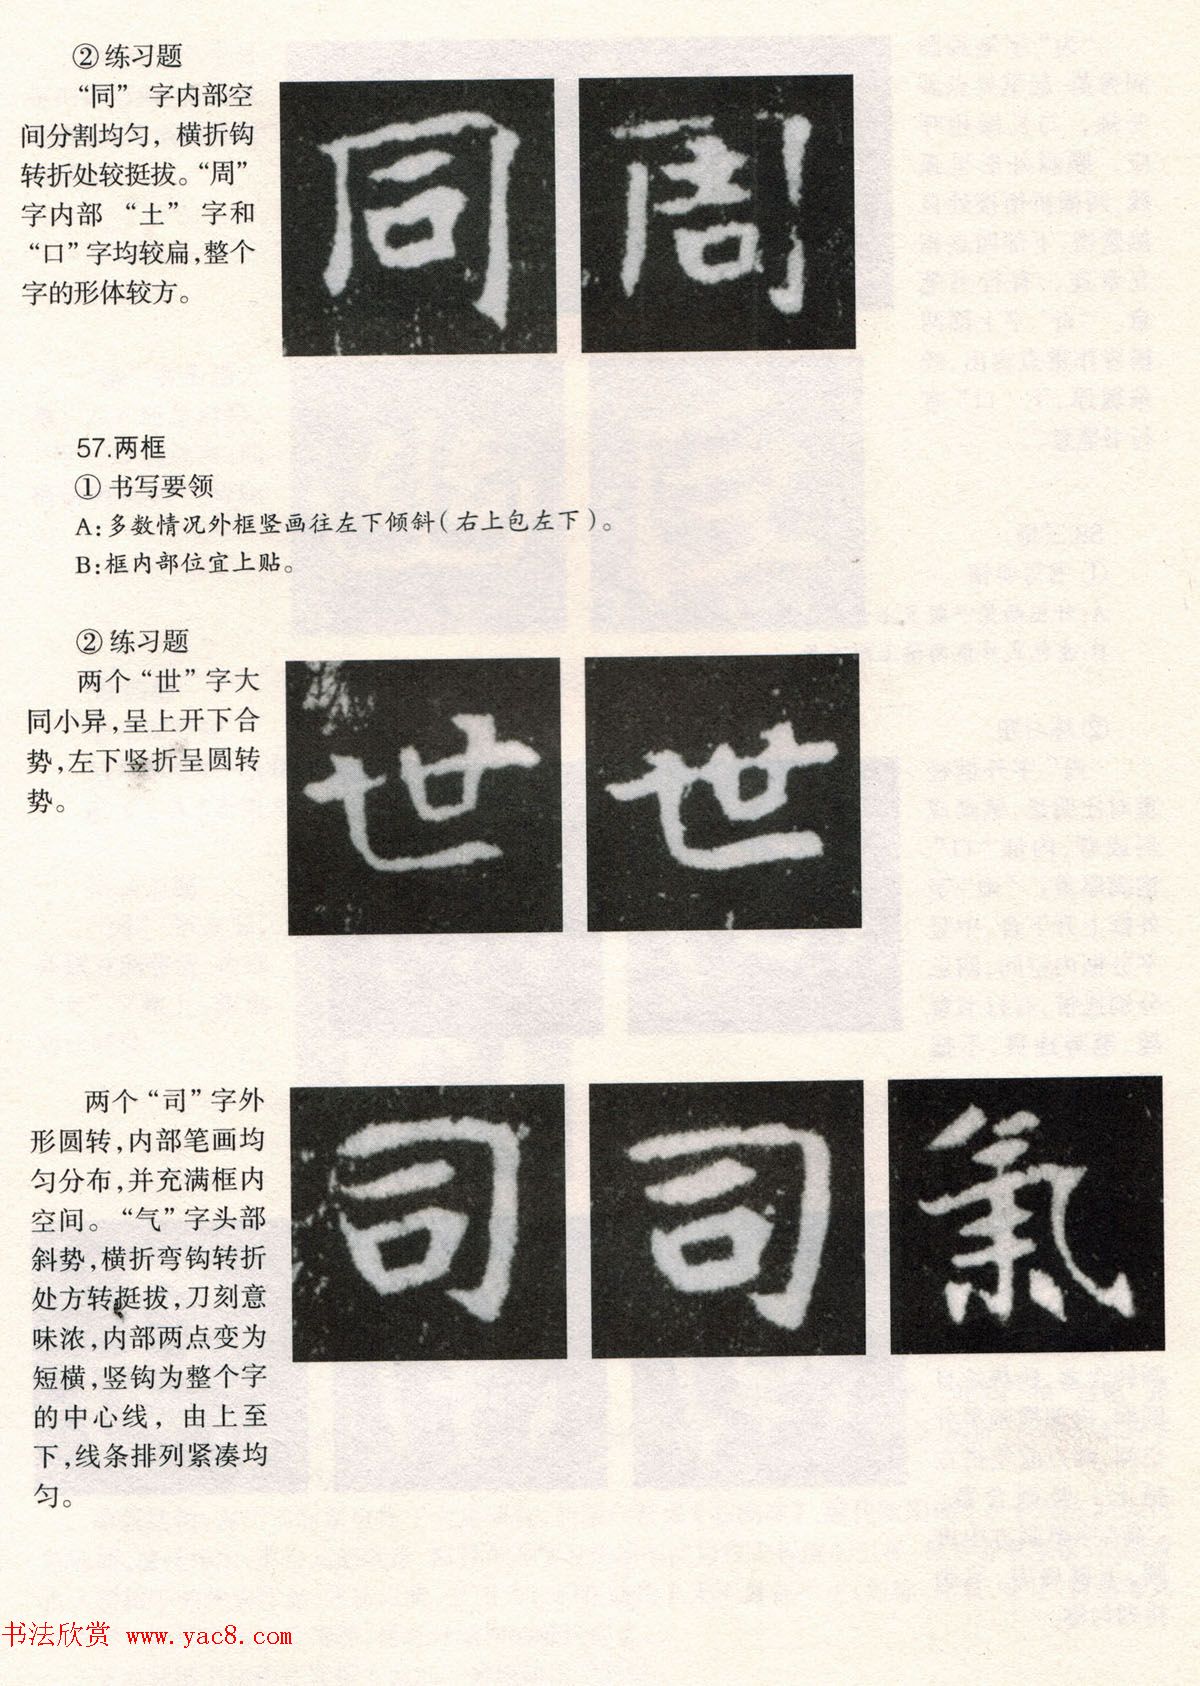 ②练习题
“同” 字内部空
间分割均匀，横折钩
转折处较挺拔。“周”
字内部 “土” 字和
“口”字均较扁，整个
字的形体较方。
同 周
57.两框
①书写要领
A:多数情况外框竖画往左下倾斜(右上包左下)。
B:框内部位宜上贴。
②练习题
两个“世”字大
同小异，呈上开下合
势，左下竖折呈圆转
势。
世 世
两个“司”字外
形圆转，内部笔画均
匀分布，并充满框内
空间。“气”字头部
斜势，横折弯钩转折
处方转挺拔，刀刻意
味浓，内部两点变为
短横，竖钩为整个字
的中心线，由上至
下，线条排列紧凑均
匀。
司 司 氣
书法欣赏 www.yac8.com